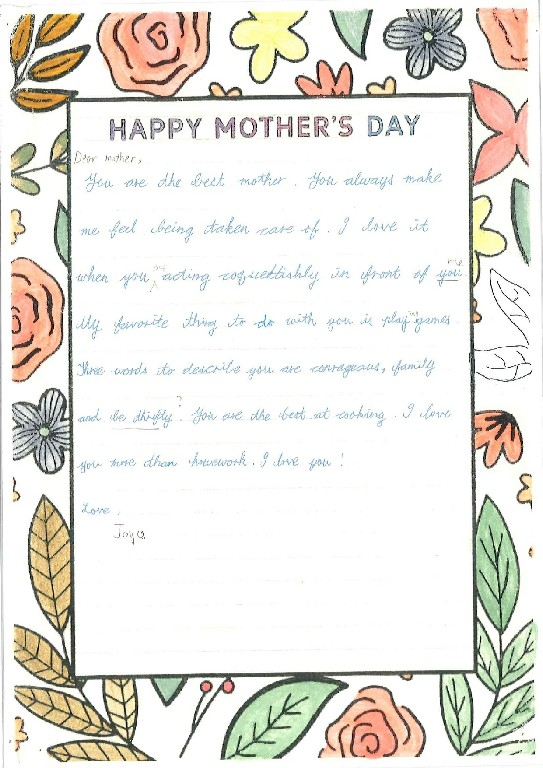 HAPPY MOTHER'S DAY
Dear mother,
You are the best mother. You always make
me feel being taken care of. I love it
when you are acting coquettishly in front of you. me
My favorite thing to do with you is playing games.
Three words to describe you are courageous, family
and be thrifty? You are the best at cooking. I love
you more than housework. I love you!
Love,